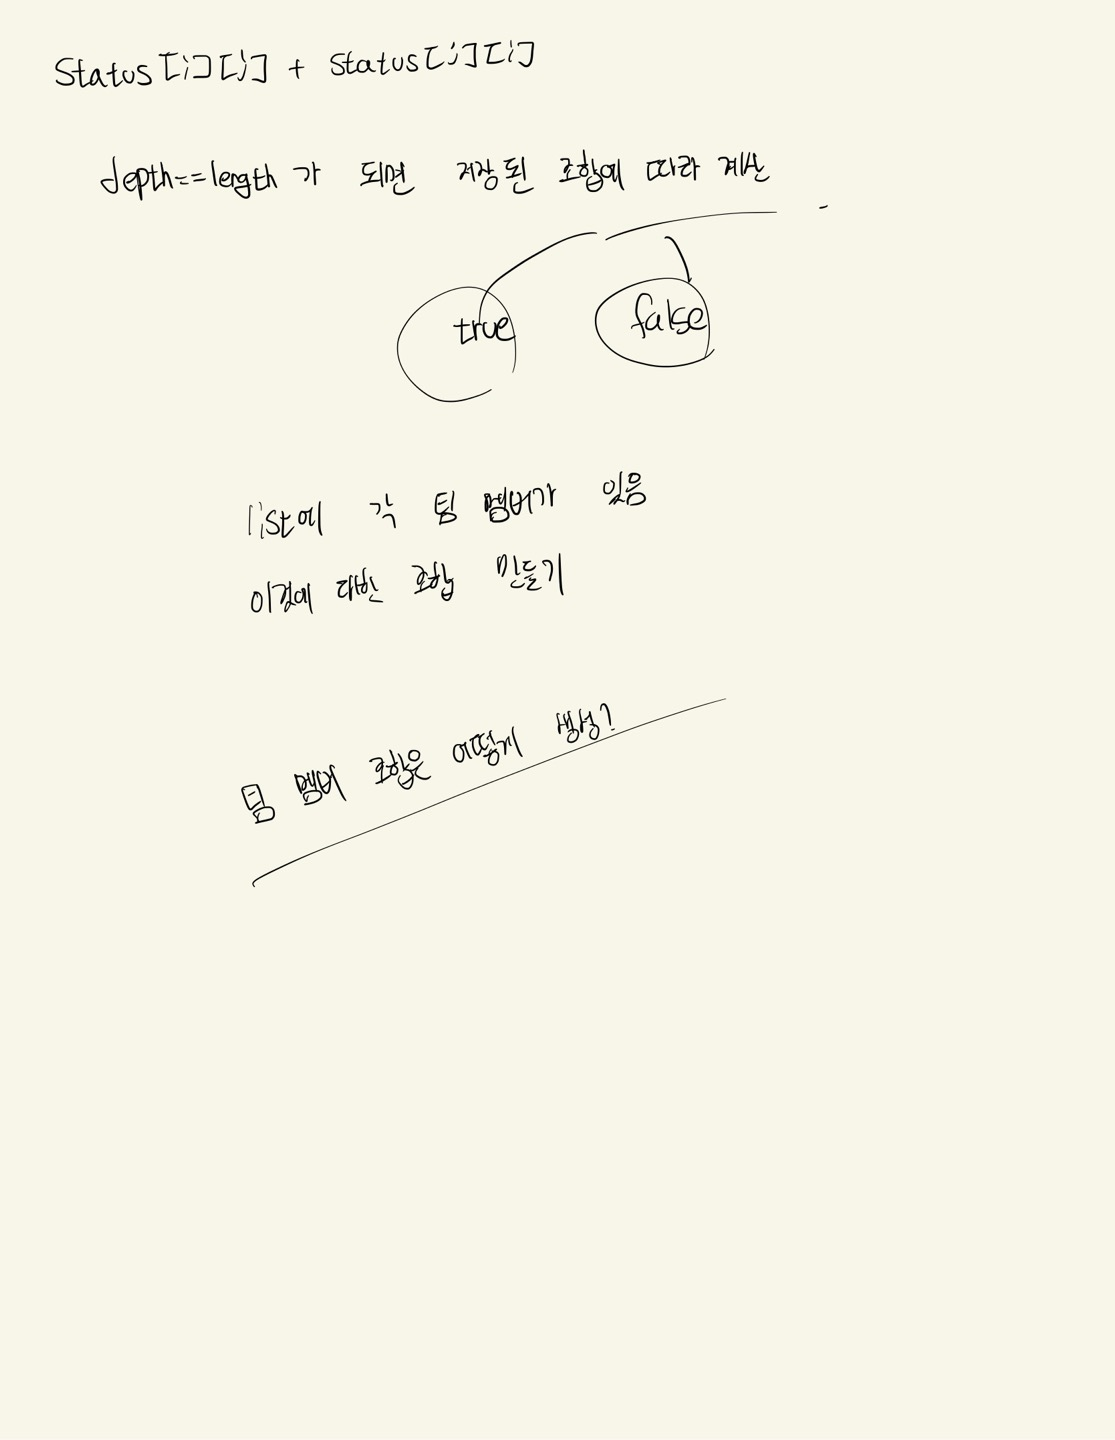 Status[i][j] + Status[j][i]
depth==length가 되면 저장된 조합에 따라 계산
true false
list에 각 팀 멤버가 있음
이것에 대한 조합 만들기
팀 멤버 조합은 어떻게 생성?